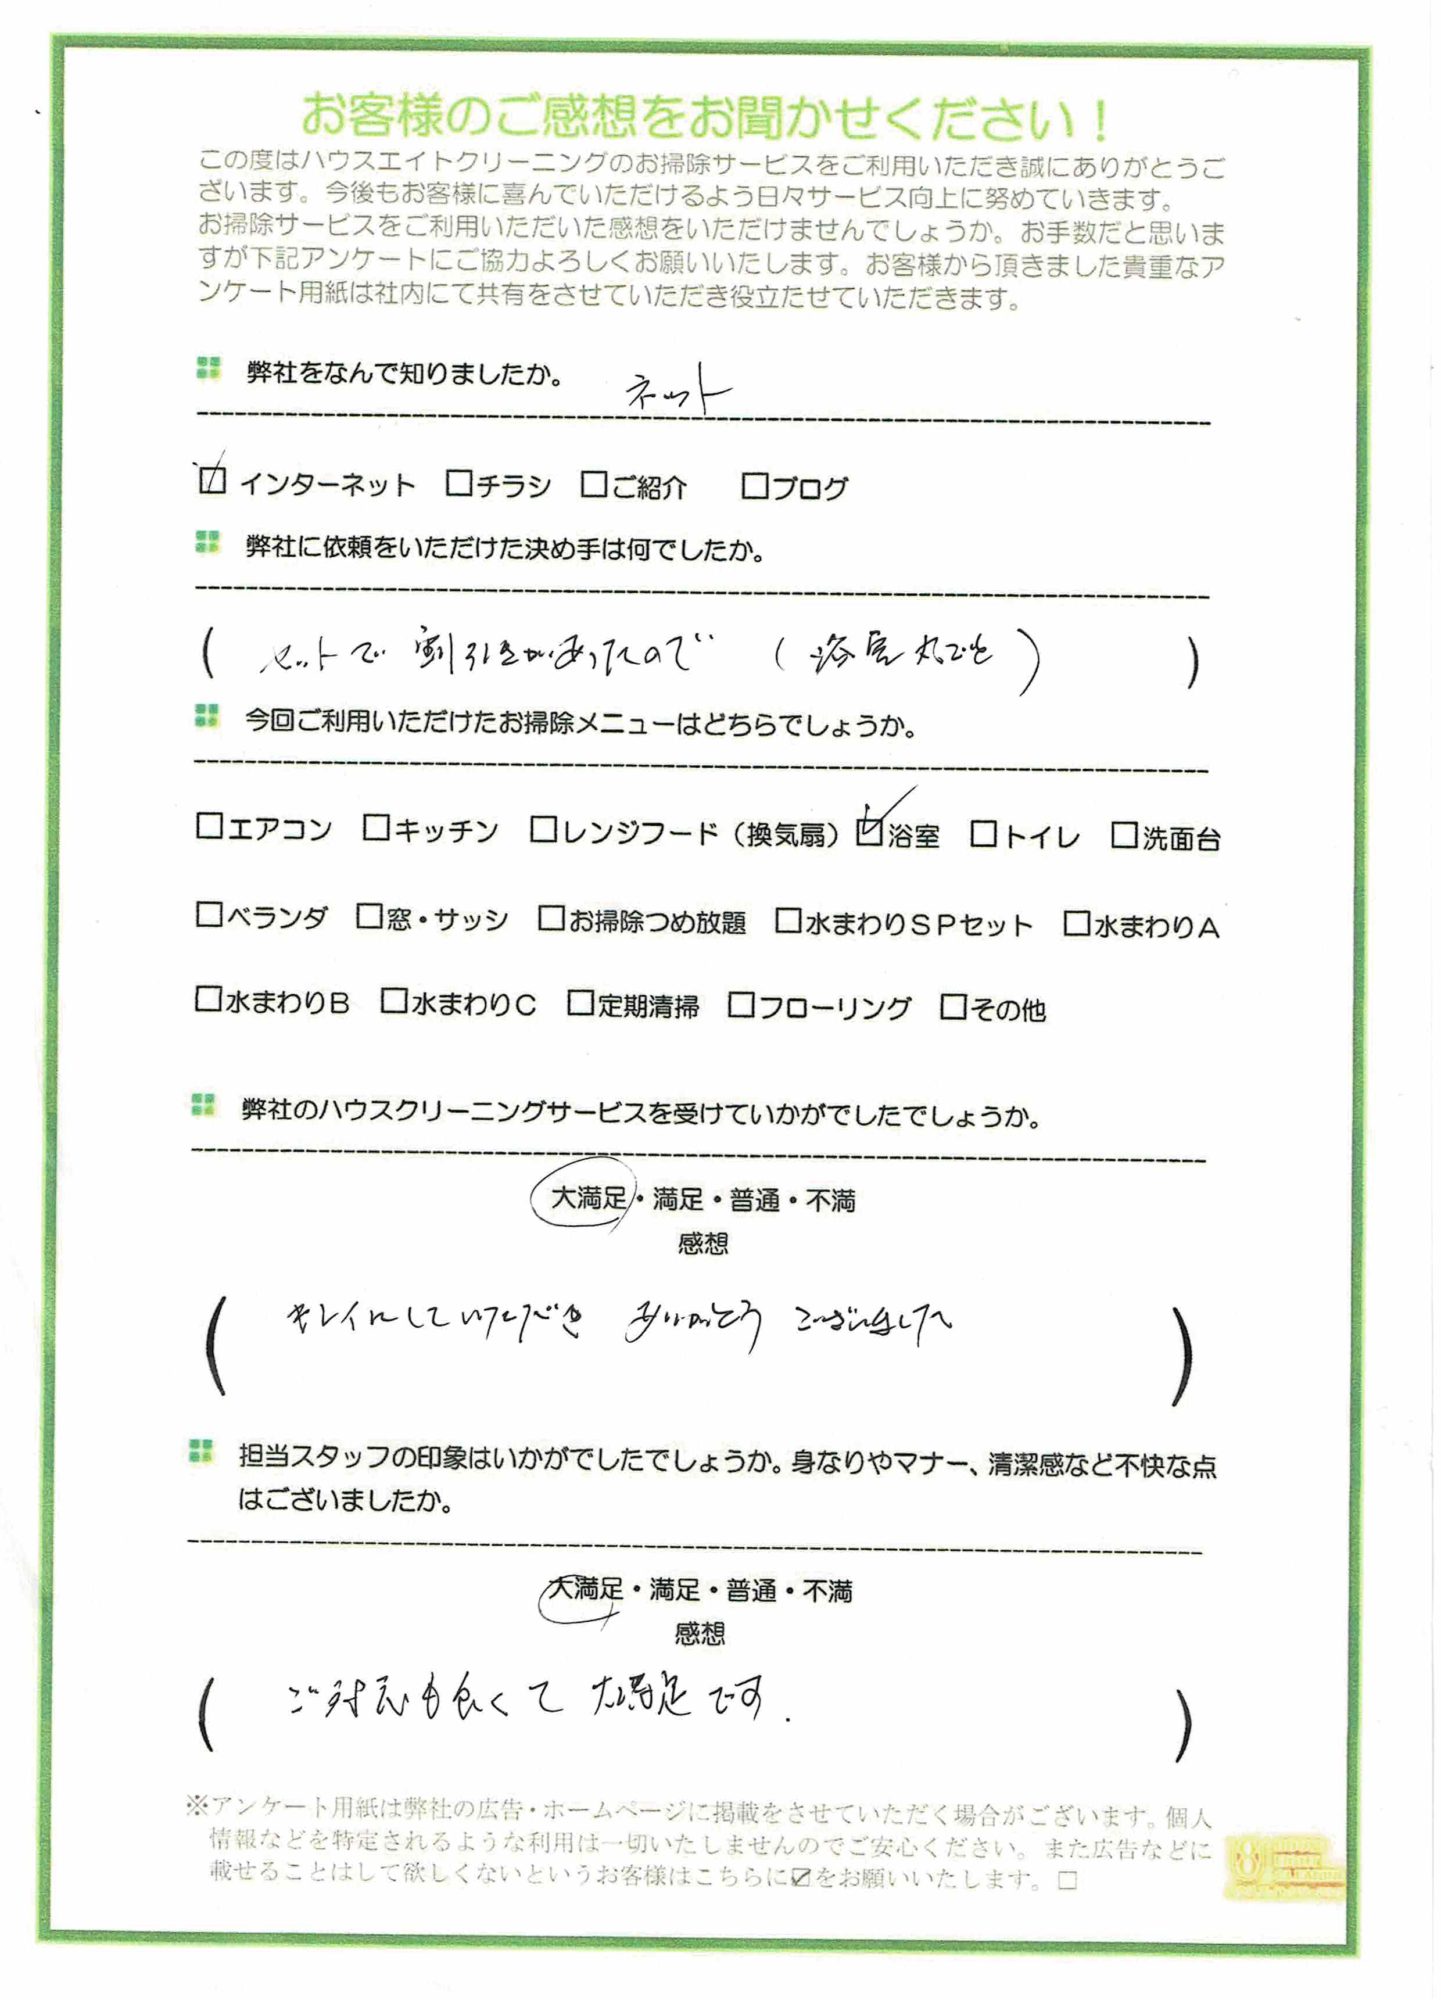 お客様のご感想をお聞かせください！
この度はハウスエイトクリーニングのお掃除サービスをご利用いただき誠にありがとうご
ざいます。今後もお客様に喜んでいただけるよう日々サービス向上に努めていきます。
お掃除サービスをご利用いただいた感想をいただけませんでしょうか。お手数だと思いま
すが下記アンケートにご協力よろしくお願いいたします。お客様から頂きました貴重なア
ンケート用紙は社内にて共有をさせていただき役立たせていただきます。
弊社をなんで知りましたか。 ネット
☑インターネット □チラシ □ご紹介 □ブログ
弊社に依頼をいただけた決め手は何でしたか。
( セットで割引きがあったので (浴室丸ごと) )
今回ご利用いただけたお掃除メニューはどちらでしょうか。
□エアコン □キッチン □レンジフード（換気扇） ☑浴室 □トイレ □洗面台
□ベランダ □窓・サッシ □お掃除つめ放題 □水まわりＳＰセット □水まわりＡ
□水まわりＢ □水まわりＣ □定期清掃 □フローリング □その他
弊社のハウスクリーニングサービスを受けていかがでしたでしょうか。
大満足・満足・普通・不満
感想
( キレイにしていただき ありがとう ございました )
担当スタッフの印象はいかがでしたでしょうか。身なりやマナー、清潔感など不快な点
はございましたか。
大満足・満足・普通・不満
感想
( ご対応も良くて 大満足です. )
※アンケート用紙は弊社の広告・ホームページに掲載をさせていただく場合がございます。個人
情報などを特定されるような利用は一切いたしませんのでご安心ください。また広告などに
載せることはして欲しくないというお客様はこちらに☑をお願いいたします。□